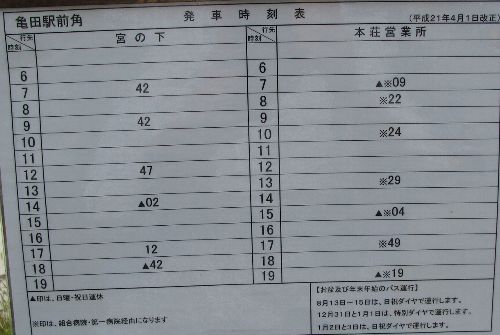 亀田駅前角 発車時刻表 (平成21年4月1日改正)
行先 時刻 宮の下 行先 時刻 本荘営業所
6 6
7 42 7 ▲※09
8 8 ※22
9 42 9
10 10 ※24
11 11
12 47 12
13 13 ※29
14 ▲02 14
15 15 ▲※04
16 16
17 12 17 ※49
18 ▲42 18
19 19 ▲※19
▲印は、日曜・祝日運休
※印は、組合病院・第一病院経由になります
【お盆及び年末年始のバス運行】
8月13日～15日は、日祝ダイヤで運行します。
12月31日と1月1日は、特別ダイヤで運行します。
1月2日と3日は、日祝ダイヤで運行します。